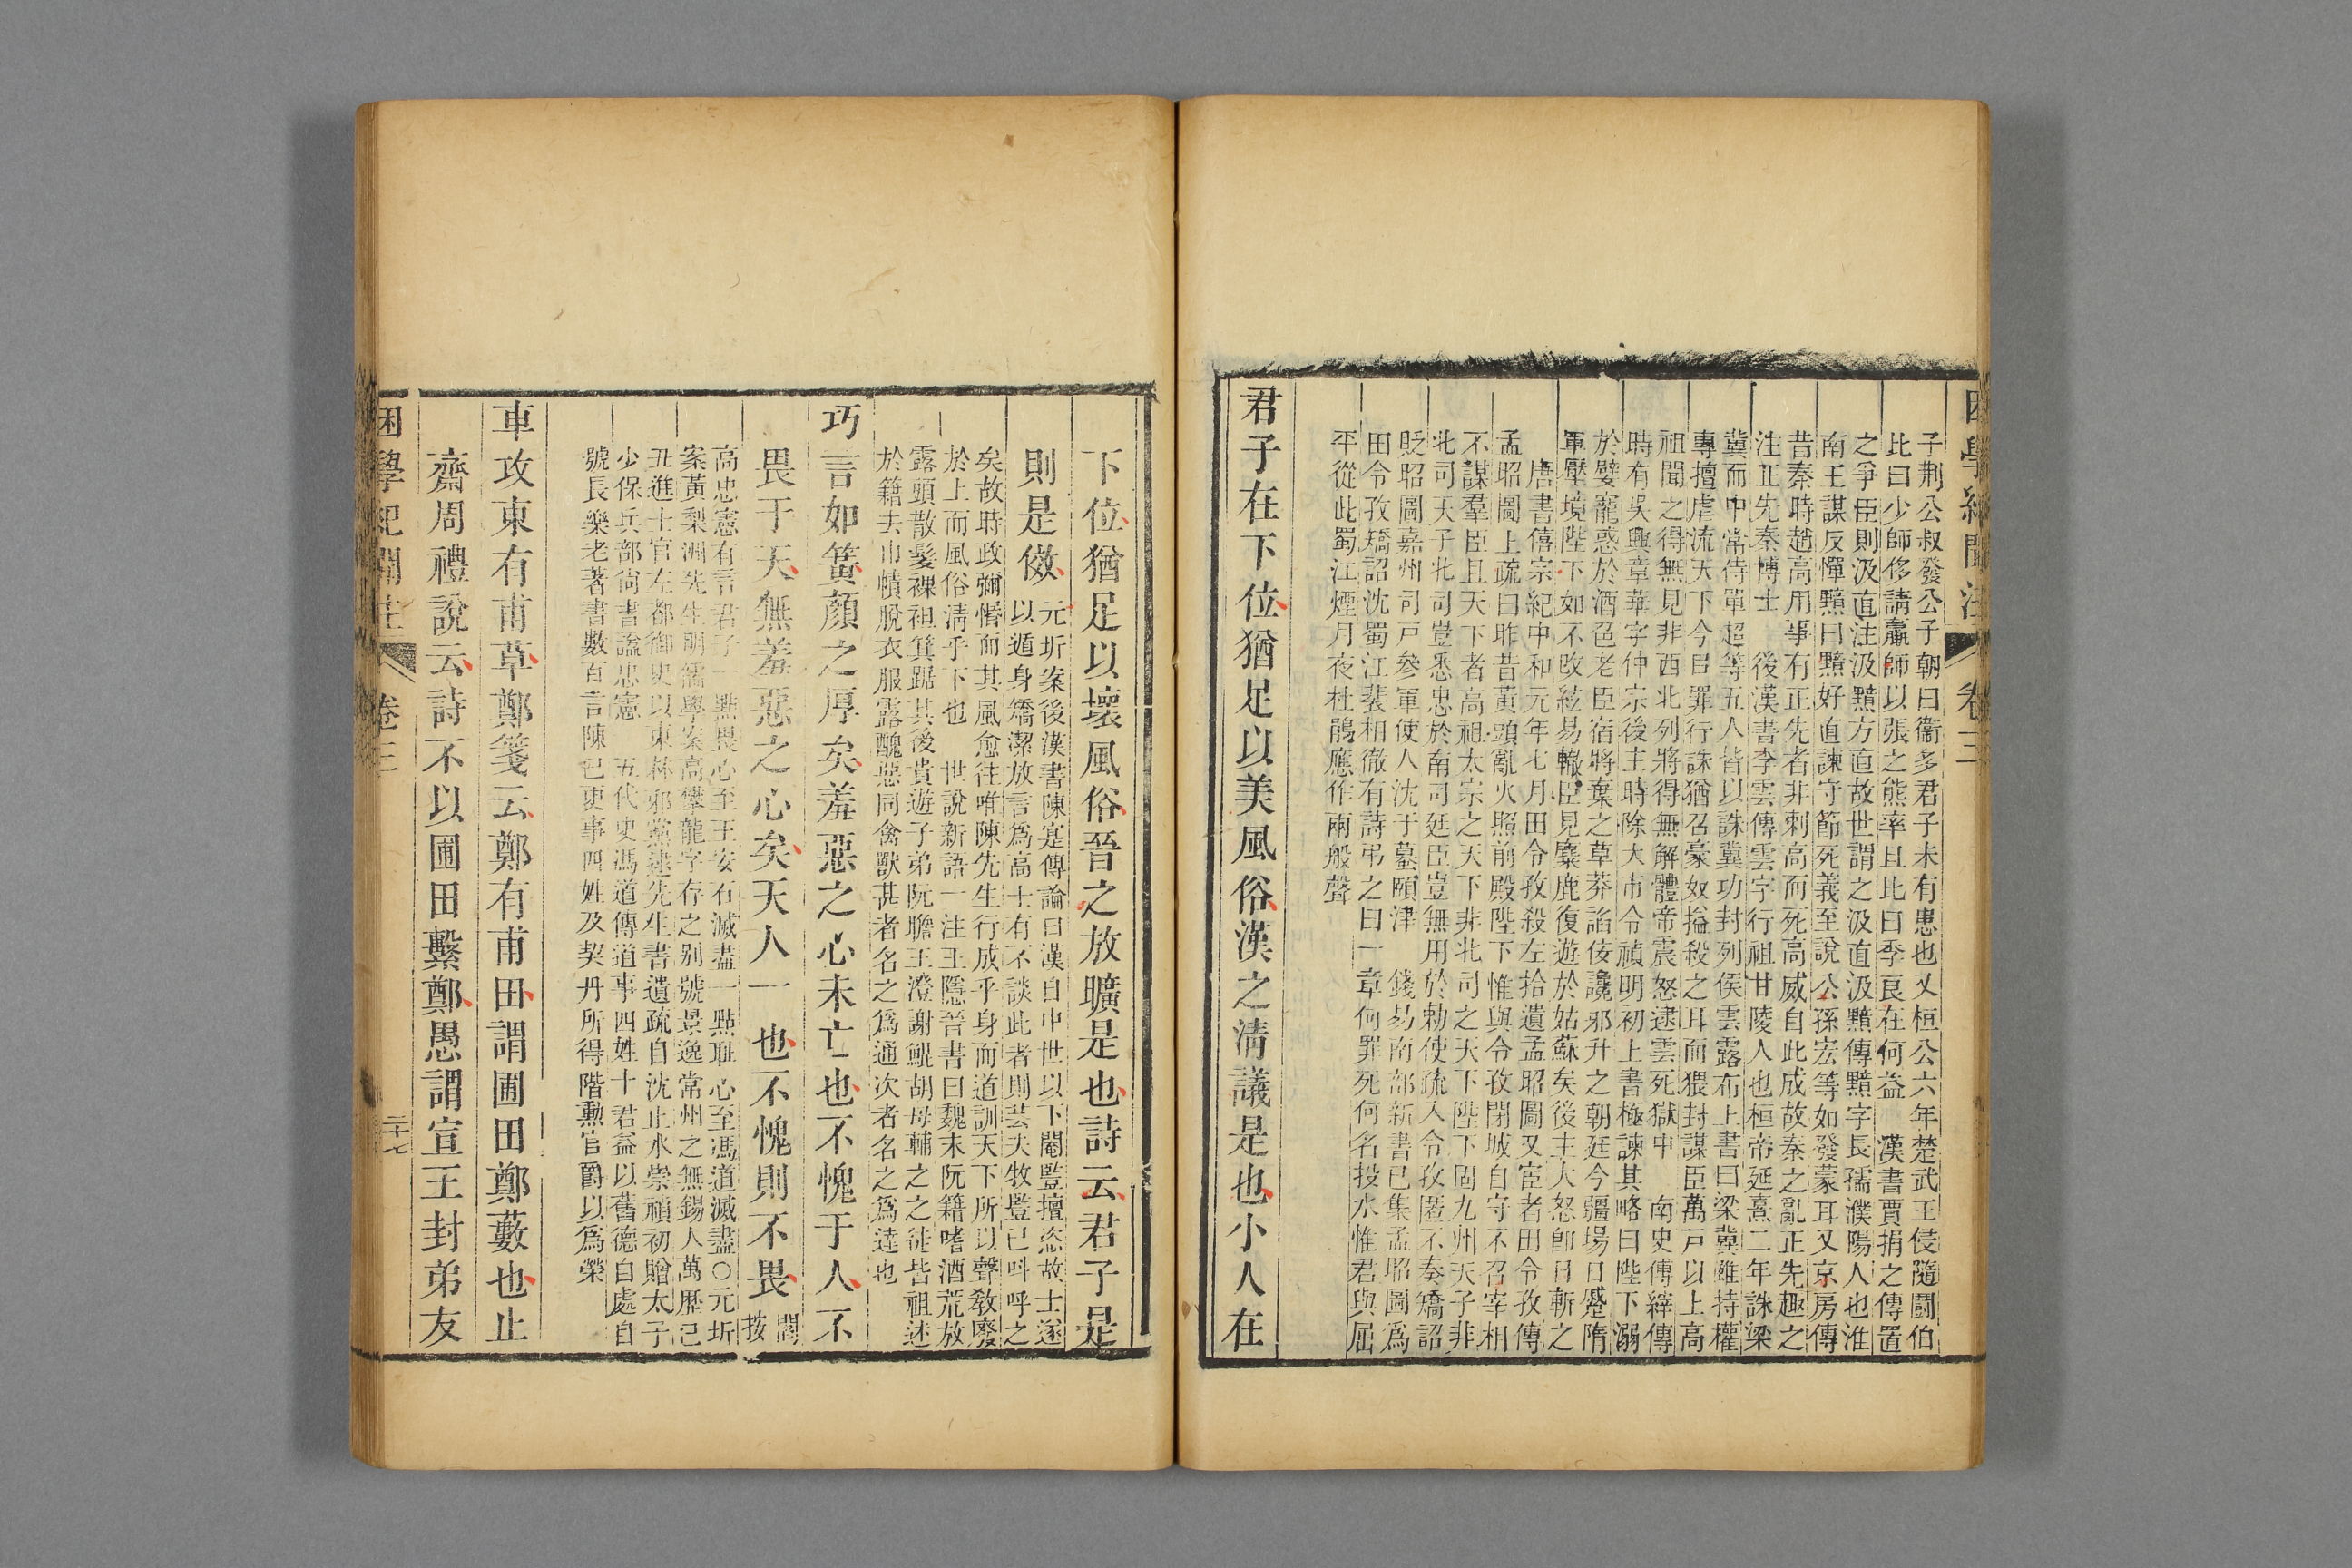 困學紀聞注 卷三
子荆公叔發公子朝曰衞多君子未有患也又桓公六年楚武王侵隨鬭伯
比曰少師侈請羸師以張之熊率且比曰季良在何益 漢書賈捐之傳置
之爭臣則汲直注汲黯方直故世謂之汲直汲黯傳黯字長孺濮陽人也淮
南王謀反憚黯曰黯好直諫守節死義至說公孫宏等如發蒙耳又京房傳
昔秦時趙高用事有正先者非刺高而死高威自此成故秦之亂正先趣之
注正先秦博士 後漢書李雲傳雲字行祖甘陵人也桓帝延熹二年誅梁
冀而中常侍單超等五人皆以誅冀功封列侯雲露布上書曰梁冀雖持權
專擅虐流天下今日罪行誅猶召豪奴搤殺之耳而猥封謀臣萬戸以上高
祖聞之得無見非西北列將得無解體帝震怒逮雲死獄中 南史傅縡傳
時有吳興章華字仲宗後主時除大市令禎明初上書極諫其略曰陛下溺
於嬖寵惑於酒色老臣宿將棄之草莽諂佞讒邪升之朝廷今疆場日蹙隋
軍壓境陛下如不改絃易轍臣見麋鹿復遊於姑蘇矣後主大怒卽日斬之
唐書僖宗紀中和元年七月田令孜殺左拾遺孟昭圖又宦者田令孜傳
孟昭圖上疏曰昨昔黃頭亂火照前殿陛下惟與令孜閉城自守不召宰相
不謀羣臣且天下者高祖太宗之天下非北司之天下陛下固九州天子非
北司天子北司豈悉忠於南司廷臣豈無用於勅使疏入令孜匿不奏矯詔
貶昭圖嘉州司戸參軍使人沈于蟇頤津 錢易南部新書已集孟昭圖爲
田令孜矯詔沈蜀江裴相徹有詩弔之曰一章何罪死何名投水惟君與屈
平從此蜀江煙月夜杜鵑應作兩般聲
君子在下位猶足以美風俗漢之淸議是也小人在
下位猶足以壞風俗晉之放曠是也詩云君子是
則是傚 元圻案後漢書陳寔傳論曰漢自中世以下閹豎擅恣故士遂
以遁身矯潔放言爲高士有不談此者則芸夫牧豎已呌呼之
矣故時政彌惛而其風愈往唯陳先生行成乎身而道訓天下所以聲敎廢
於上而風俗淸乎下也 世說新語一注王隱晉書曰魏末阮籍嗜酒荒放
露頭散髮裸袒箕踞其後貴遊子弟阮瞻王澄謝鯤胡母輔之之徒皆祖述
於籍去巾幘脫衣服露醜惡同禽獸甚者名之爲通次者名之爲達也
巧言如簧顏之厚矣羞惡之心未亡也不愧于人不
畏于天無羞惡之心矣天人一也不愧則不畏 閻按
高忠憲有言君子一點畏心至王安石滅盡一點耻心至馮道滅盡○元圻
案黃梨洲先生明儒學案高攀龍字存之别號景逸常州之無錫人萬歷己
丑進士官左都御史以東林邪黨逮先生書遺疏自沈止水崇禎初贈太子
少保兵部尙書謚忠憲 五代史馮道傳道事四姓十君益以舊德自處自
號長樂老著書數百言陳己更事四姓及契丹所得階勳官爵以爲榮
車攻東有甫草鄭箋云鄭有甫田謂圃田鄭藪也止
齋周禮說云詩不以圃田繫鄭愚謂宣王封弟友
困學紀聞注 卷三 二十七